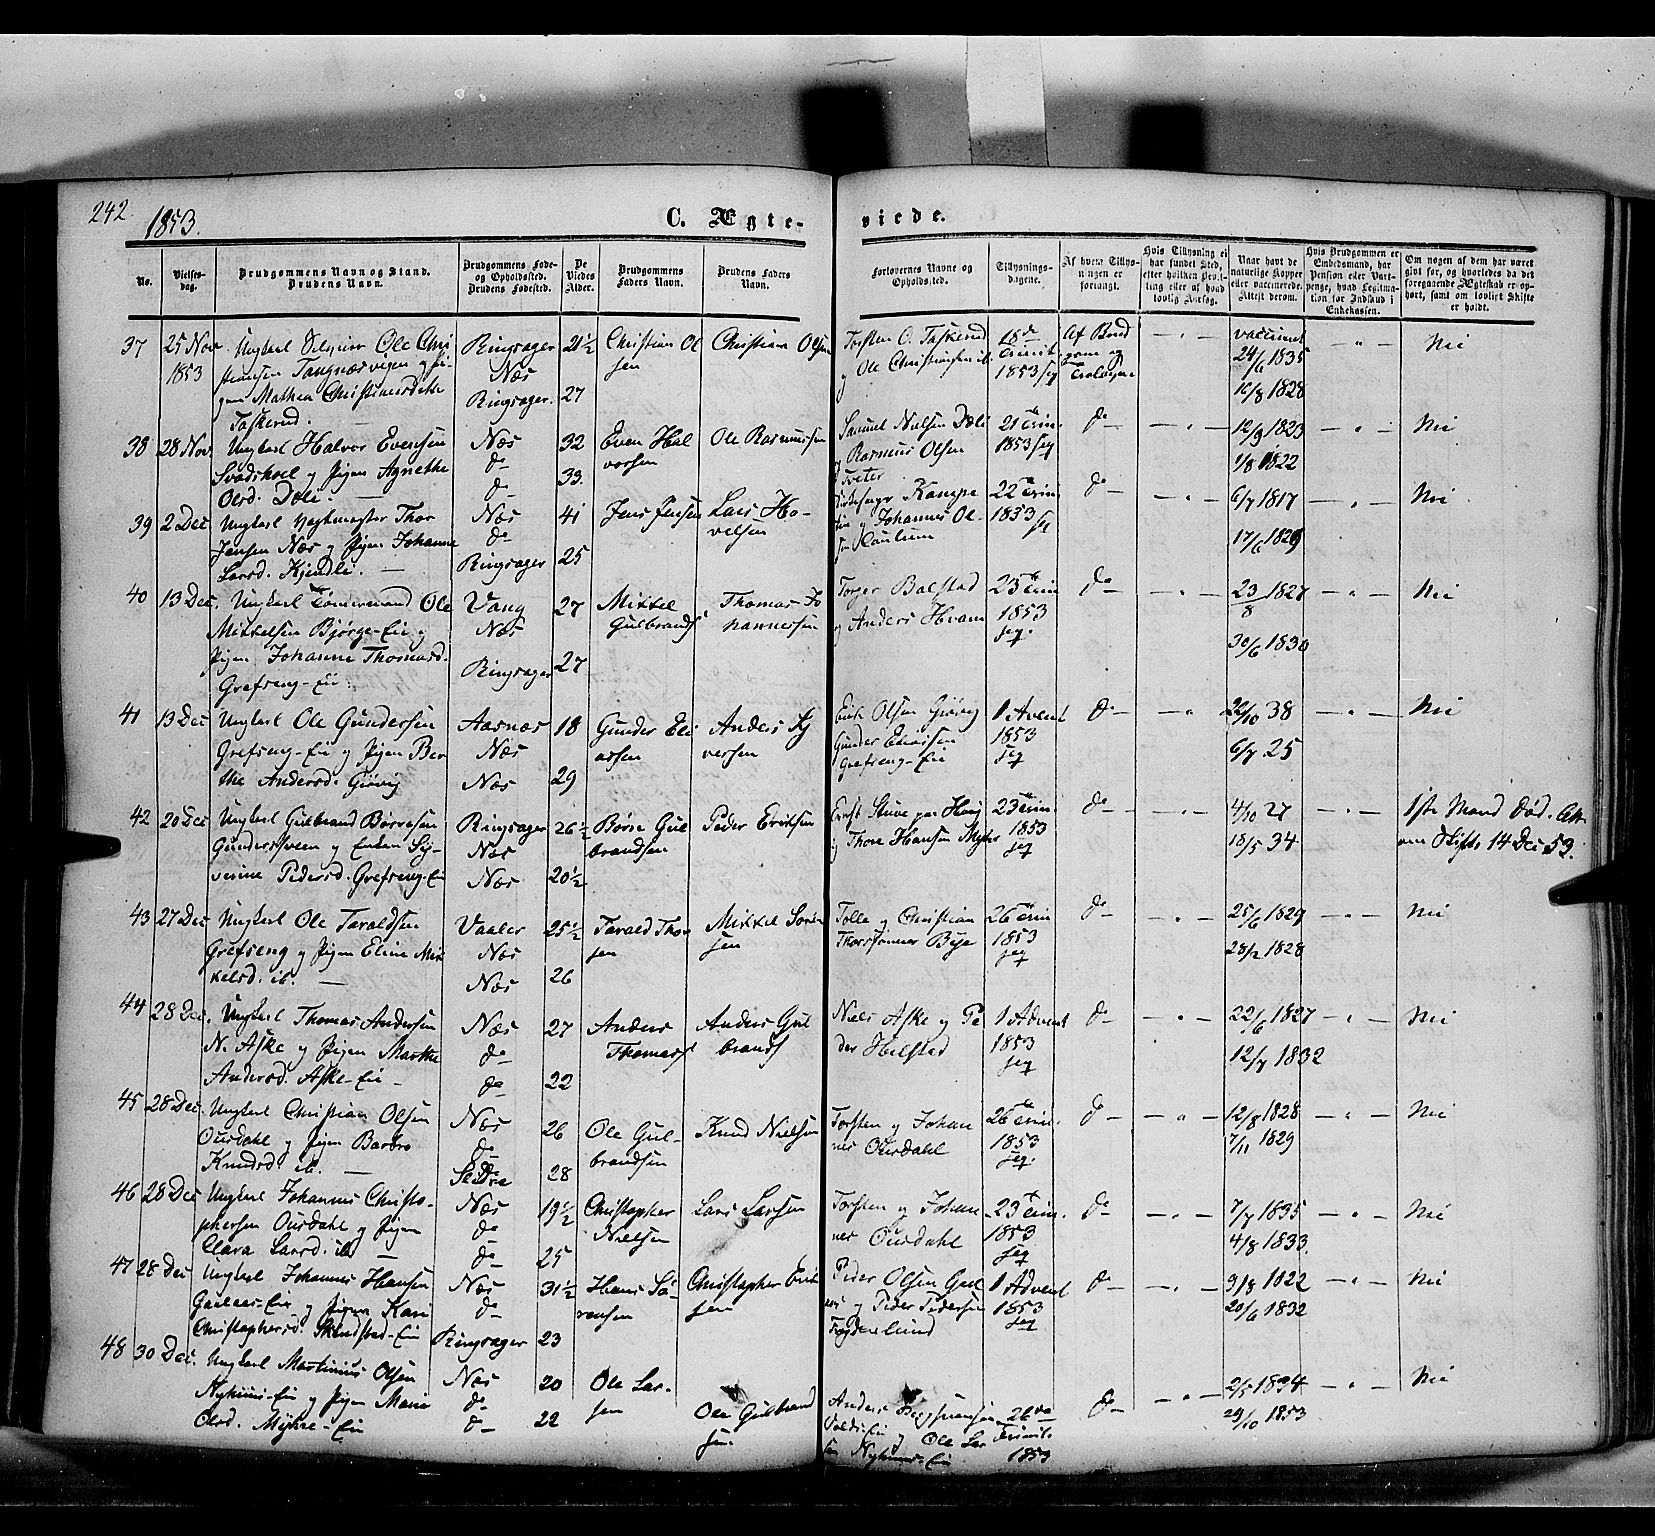 242.
1853.
C. Ægte-
viede.
No.
Vielses-
dag.
Brudgommens Navn og Stand.
Brudens Navn.
Brudgommens Føde-
og Opholdssted.
Brudens Fødested.
De
Viedes
Alder.
Brudgommens
Faders Navn.
Brudens Faders
Navn.
Forlovernes Navne og
Opholdssted.
Tillysnings-
dagene.
Af hvem Tillys-
ningen er
forlangt.
Hvis Tillysning ei
har fundet Sted,
efter hvilken Bevil-
ling eller af hvad
lovlig Aarsag.
Naar havt de
naturlige Kopper
eller vaccinerede.
Attest derom.
Hvis Brudgommen er
Embedsmand, har
Pension eller Vart-
penge, hvad Legitima-
tion for Indskud i
Enkekassen.
Om nogen af dem har været
givt før, og hvorledes da det
foregaaende Ægteskab er op-
hørt, samt om lovligt Skifte
er holdt.
37 25 Nov 1853
Ungkarl Ole Chri-
stiansen Tangnæsvegen og Pi-
gen Mathea Christiansdatter
Taskerud.
Ringsager
Næs
Ringsager.
21½
27
Christian Ol
sen
Christian Olsen
Torsten O. Taskerud
og Ole Christiansen ib.
18de
Trinit.
1853
Af Brud
gom og
vaccineret
24/6 1835
10/8 1828
Nei
38 28 Nov
Ungkarl Halvor Evensen
og Pigen Agnethe
Olsd. Deli.
Næs
do
do
32
33
Even Hal
vorsen
Ole Rasmussen
Samuel Nielsen Deli
og Rasmus Olsen
21 Trin.
1853
do
12/9 1823
1/8 1822
Nei
39 2 Dec
Ungkarl Thor
Jensen Næs og Pigen Johanne
Larsd. Kjendli.
Næs
do
Ringsager
41
25
Jens Jensen
Lars Ho-
velsen
Kampe
og Johannes Ol
22 Trin
1853
do
6/7 1817
17/6 1829
Nei
40 13 Dec.
Ungkarl Tømmermand Ole
Mikkelsen Bjørge-Eie og
Pigen Johanne Thomasd.
Grefseng-Eie.
Vang
Næs
Ringsager
27
27
Mikkel
Gulbrands
Thomas Jo
hannessen
Torger Balstad
og Anders Hvam
23 Trin
1853
do
23/8 1827
30/6 1830
Nei
41 13 Dec
Ungkarl Ole Gundersen
Grefseng-Eie og Pigen Ber
the Andersd. Giövig
Aasnæs
Næs
Næs
18
29
Gunder Eli
assen
Anders Sy
versen
Erik Olsen Giövig
Gunder Eliassen
Grefseng-Eie
1 Advent
1853
do
22/10 38
6/7 25
Nei
42 20 Dec
Ungkarl Gulbrand Börresen
Gundersveen og Enken Sy-
verine Pedersd. Grefseng-Eie
Ringsager
Næs
Næs
26½
20½
Börre Gul
brandsen
Peder Eriksen
Ernst Stuve paa Haug
og Thore Hansen Myhr
23 Trin
1853
do
4/10 27
18/5 34
1ste Mand död. Att.
om Skifte 14 Dec 53.
43 27 Dec
Ungkarl Ole Taraldsen
Grefseng og Pigen Eline Mik
kelsd. ib.
Vaaler
Næs
Næs
25½
26
Tarald Thor
sen
Mikkel Sörn
sen
Tolle og Christian
Thorsönner Bye
26 Trin
1853
do
25/6 1829
28/2 1828
Nei
44 28 Dec.
Ungkarl Thomas Andersen
N. Aske og Pigen Marthe
Andersd. Aske-Eie
Næs
do
do
27
22
Anders
Thomass
Anders Gul
brands
Niels Aske og Pe
der Helstad
1 Advent
1853
do
22/6 1827
12/7 1832
Nei
45 28 Dec.
Ungkarl Christian Olsen
Ourdahl og Pigen Barbro
Knudsd. ib.
Næs
do
Slidre
26
28
Ole Gul-
brandsen
Knud Nielsen
Torsten og Johan
nes Ourdahl
26 Trin.
1853
do
12/8 1828
7/11 1829
Nei
46 28 Dec
Ungkarl Johannes Christo-
phersen Ourdahl og Pigen
Clara Larsd. ib
Næs
do
do
19½
25
Christopher
Nielsen
Lars Larsen
Torsten og Johan
nes Ourdahl
23 Trin.
1853
do
7/7 1835
4/8 1833.
Nei
47 28 Dec
Ungkarl Johannes Hansen
Gaalaas-Eie og Pigen Kari
Christophersd. Skredstad-Eie
Næs
do
Ringsager
31½
23
Hans Sö-
rensen
Christopher Erik
sen
Peder Olsen
og Peder Pedersen
1 Advent
1853
do
9/8 1822
20/6 1832
Nei
48 30 Dec.
Ungkarl Martinius Olsen
Nyhuus-Eie og Pigen Maria
Olsd. Myhre-Eie
Næs
do
do
20
22
Ole Lar-
sen
Ole Gulbrand
sen.
Anders
og Ole Lar
sen Nyhuus-Eie
26de
Trinit.
1853
do
2/5 1834
29/10 1853
Nei